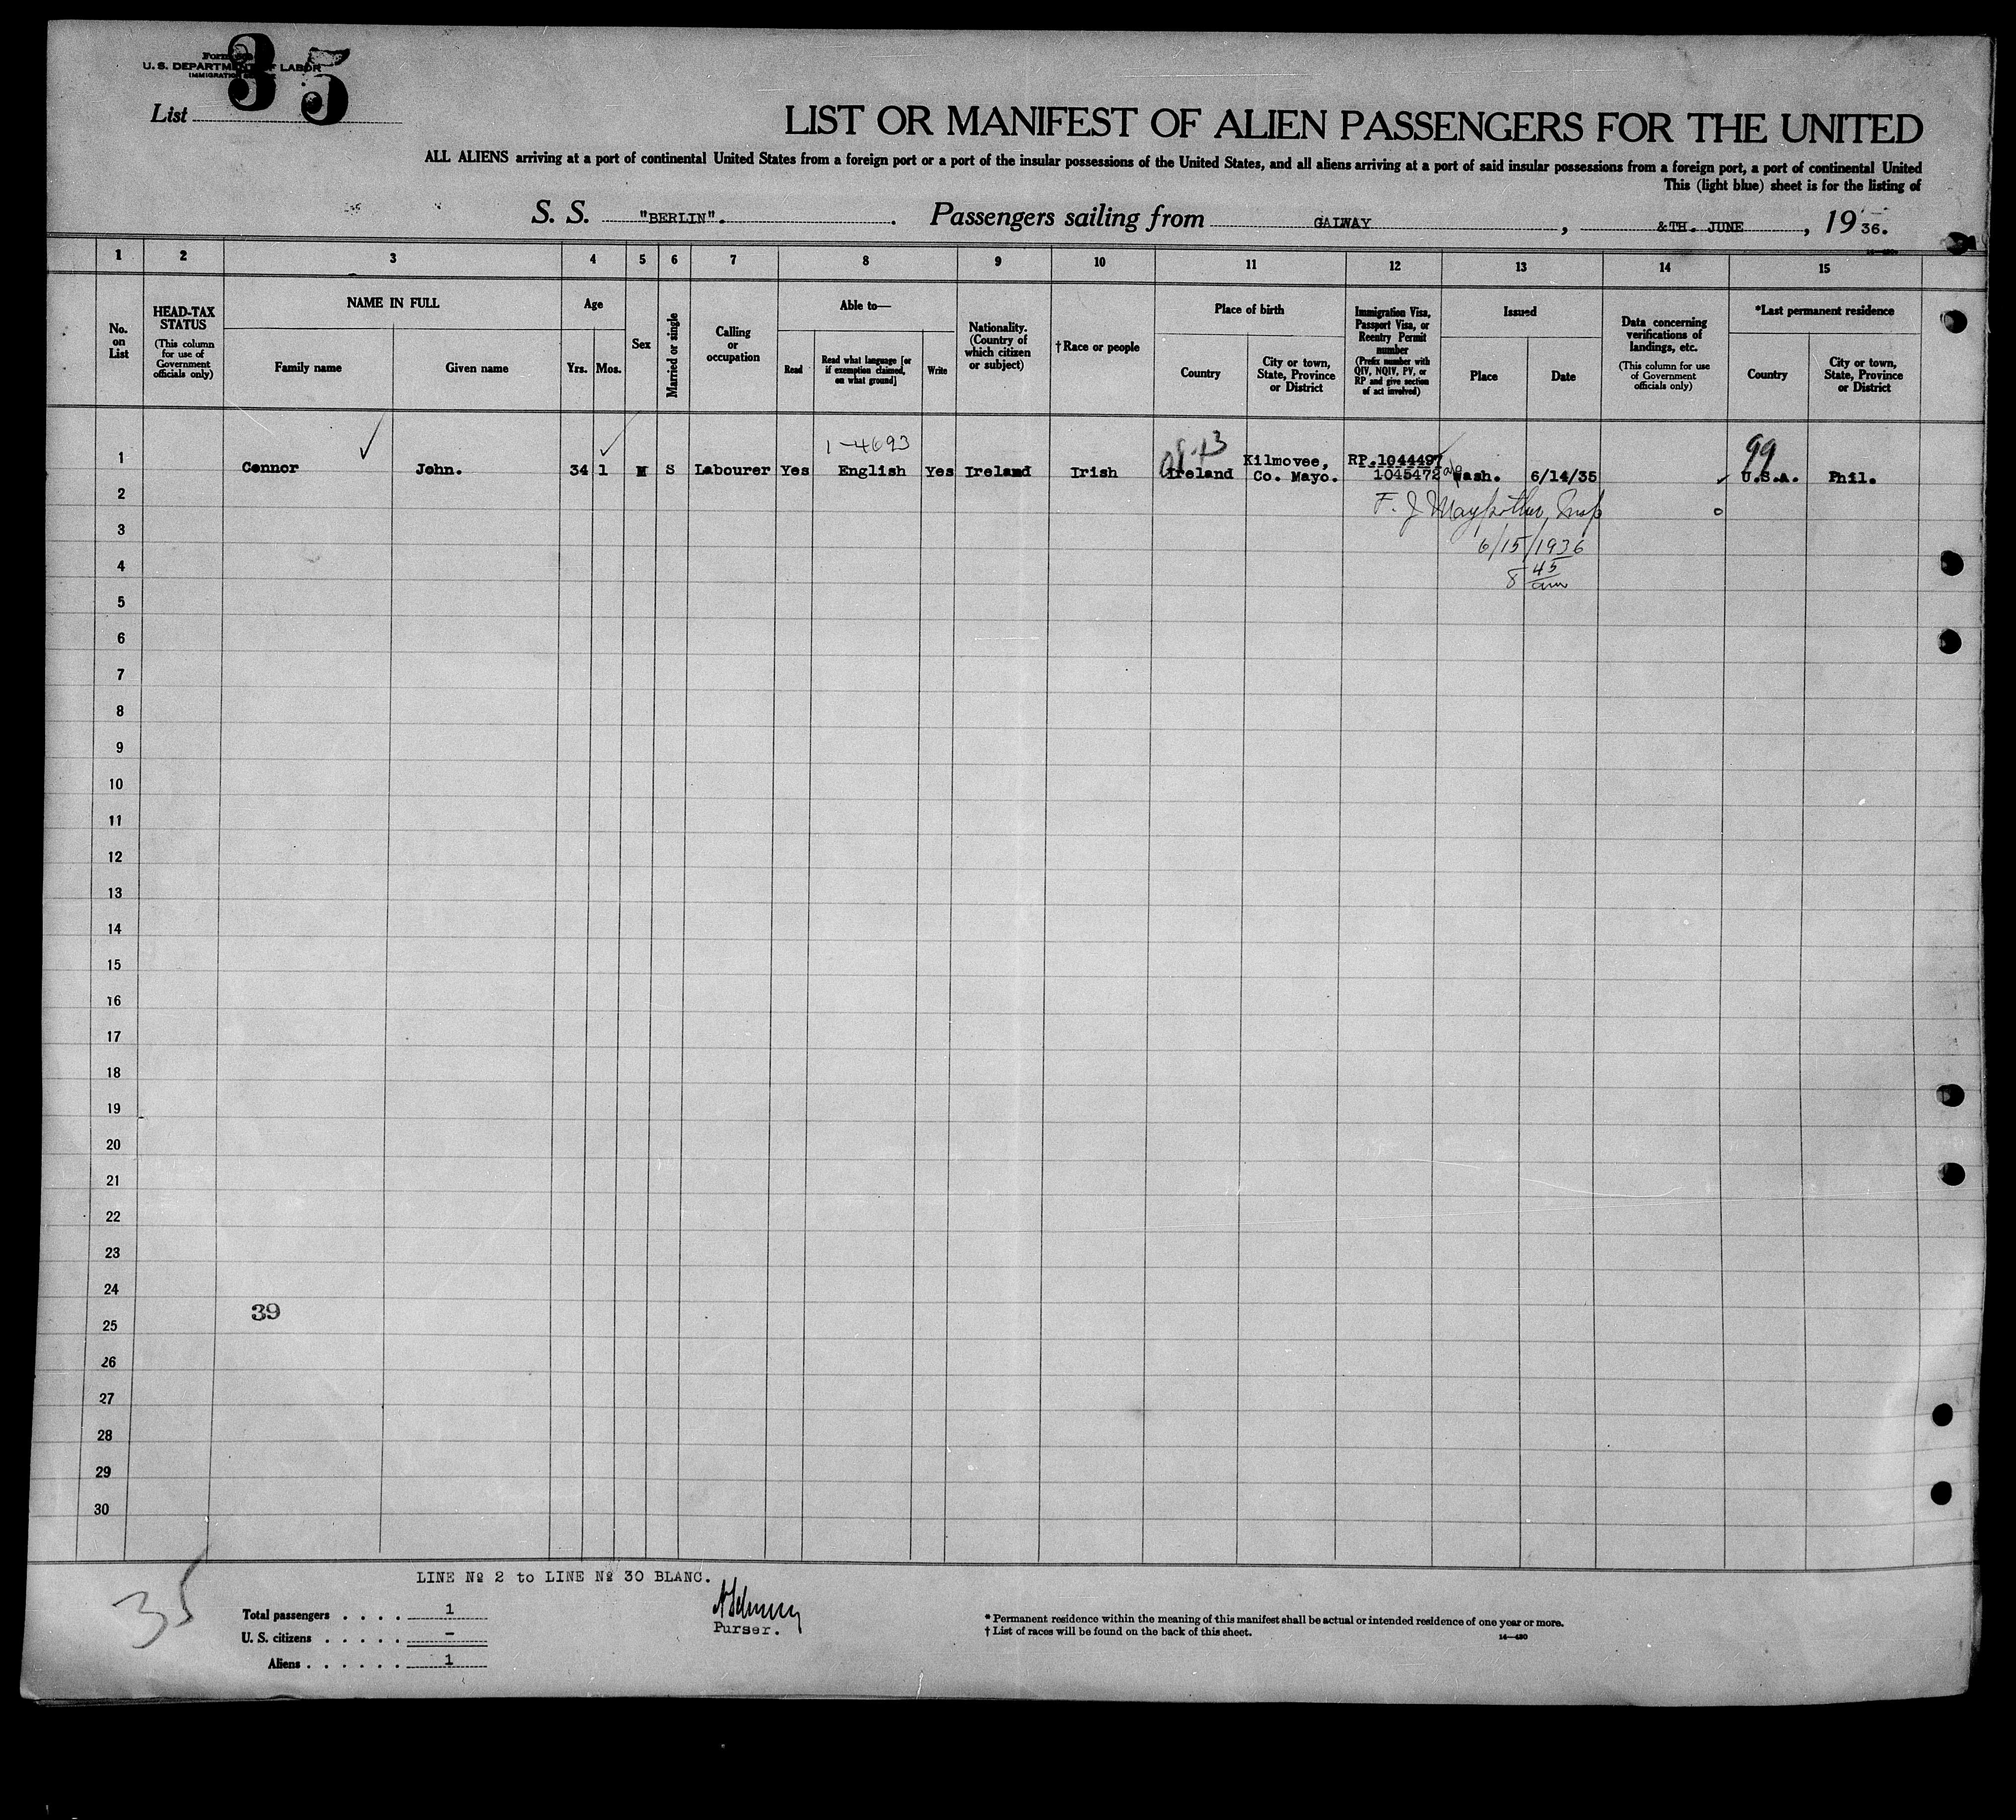 35
U. S. DEPARTMENT OF LABOR
IMMIGRATION
List
LIST OR MANIFEST OF ALIEN PASSENGERS FOR THE UNITED
ALL ALIENS arriving at a port of continental United States from a foreign port or a port of the insular possessions of the United States, and all aliens arriving at a port of said insular possessions from a foreign port, a port of continental United
This (light blue) sheet is for the listing of
S. S. "BERLIN". Passengers sailing from GALWAY, &TH. JUNE, 1936.
1 2 3 4 5 6 7 8 9 10 11 12 13 14 15
No. on List
HEAD-TAX STATUS
(This column for use of Government officials only)
NAME IN FULL
Family name
Given name
Age
Yrs. Mos.
Sex
Married or single
Calling or occupation
Able to—
Read
Read what language [or if exemption claimed, on what ground]
Write
Nationality. (Country of which citizen or subject)
†Race or people
Place of birth
Country
City or town, State, Province or District
Immigration Visa, Passport Visa, or Reentry Permit number
(Prefix number with QIV, NQIV, PV, or RP and give section of act involved)
Issued
Place
Date
Data concerning verifications of landings, etc.
(This column for use of Government officials only)
*Last permanent residence
Country
City or town, State, Province or District
1-4693
99
1 Connor John. 34 1 M S Labourer Yes English Yes Ireland Irish Ireland Kilmovee, Co. Mayo. RP.1044497 1045472 Wash. 6/14/35 U.S.A. Phil.
2
F. J. Insp
3
6/15/1936
4
8 45 am
5
6
7
8
9
10
11
12
13
14
15
16
17
18
19
20
21
22
23
24
39
25
26
27
28
29
30
35
LINE № 2 to LINE № 30 BLANC.
Total passengers . . . . 1
U. S. citizens . . . . . –
Aliens . . . . . . 1
Purser.
* Permanent residence within the meaning of this manifest shall be actual or intended residence of one year or more.
† List of races will be found on the back of this sheet.
14—430